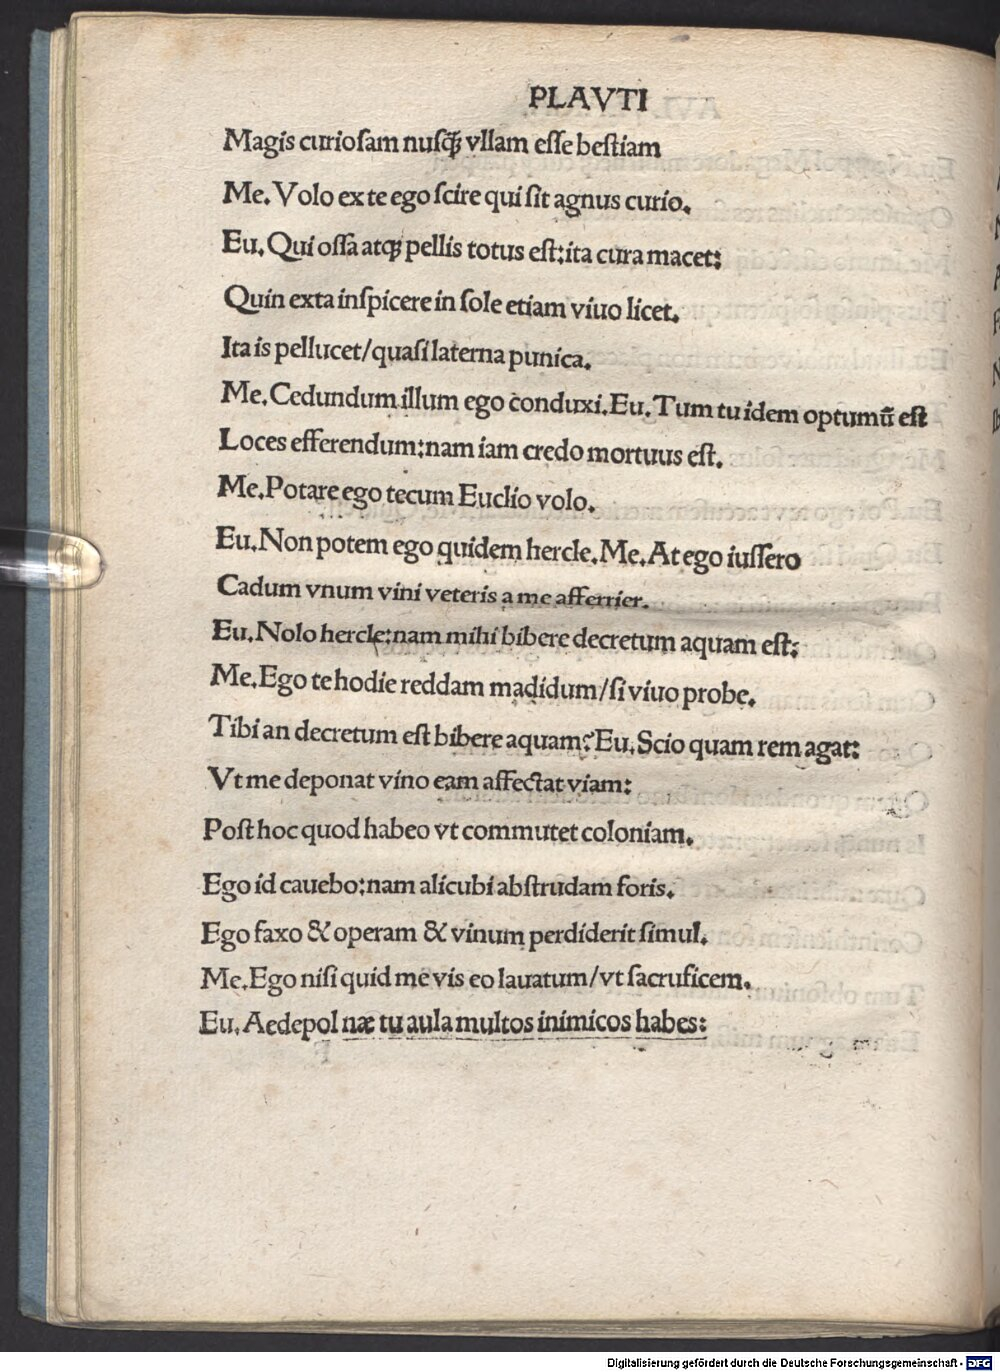 PLAVTI
Magis curiosam nusq̃ vllam esse bestiam
Me. Volo ex te ego scire qui sit agnus curio.
Eu. Qui ossa atqꝫ pellis totus est: ita cura macet:
Quin exta inspicere in sole etiam viuo licet.
Ita is pellucet/quasi laterna punica.
Me. Cedundum illum ego conduxi. Eu. Tum tu idem optumũ est
Loces efferendum: nam iam credo mortuus est.
Me. Potare ego tecum Euclio volo.
Eu. Non potem ego quidem hercle. Me. At ego iussero
Cadum vnum vini veteris a me afferrier.
Eu. Nolo hercle: nam mihi bibere decretum aquam est:
Me. Ego te hodie reddam madidum/si viuo probe.
Tibi an decretum est bibere aquam? Eu. Scio quam rem agat:
Vt me deponat vino eam affectat viam:
Post hoc quod habeo vt commutet coloniam.
Ego id cauebo: nam alicubi abstrudam foris.
Ego faxo & operam & vinum perdiderit simul.
Me. Ego nisi quid me vis eo lauatum/vt sacruficem.
Eu. Aedepol næ tu aula multos inimicos habes:
Digitalisierung gefördert durch die Deutsche Forschungsgemeinschaft - DFG